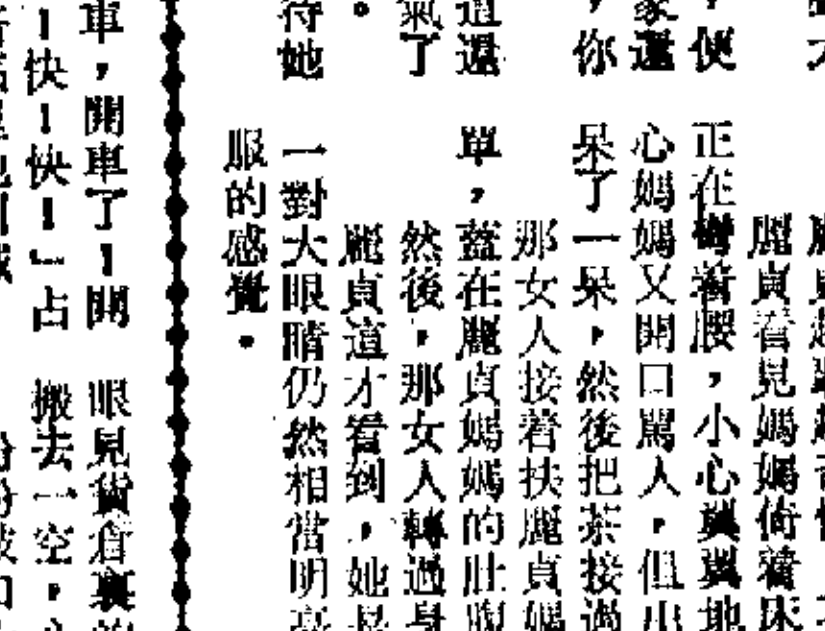 ，便
家還
，你
道還
氣了
。
待她
麗貞看見媽媽倚着床
正在彎着腰，小心翼翼地
心媽媽又開口罵人，但出
呆了一呆，然後把茶接過
那女人接着扶麗貞媽
單，蓋在麗貞媽媽的肚腹
然後，那女人轉過身
麗貞這才看到，她是
一對大眼睛仍然相當明亮
服的感覺。
車，開車了！開
！快！快！」占
眼見貨倉裏的
搬去一空，